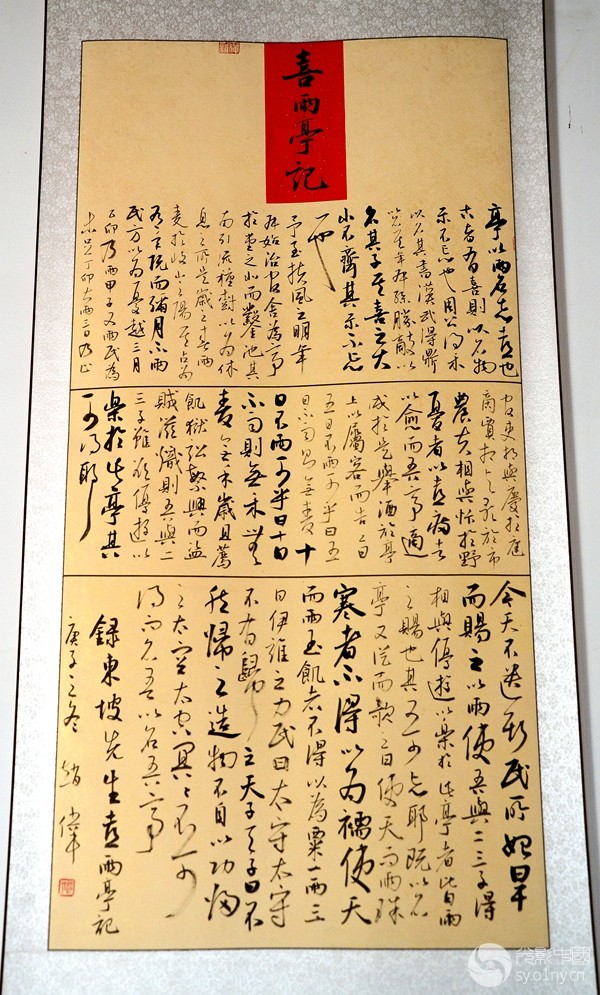 喜雨亭記
亭以雨名志喜也
古者有喜則以名物
示不忘也周公得禾
以名其書漢武得鼎
以名其年叔孫勝敵以
名其子其喜之大
小不齊其示不忘
一也
予至扶風之明年
始治官舍為亭
於堂之北而鑿池其
而引流種樹以為休
息之所是歲之春雨
麥於岐山之陽其占為
有年既而彌月不雨
民方以為憂越三月
乙卯乃雨甲子又雨民以為
未足丁卯大雨三日乃止
官吏相與慶於庭
商賈相與歌於市
農夫相與忭於野
憂者以喜病者
以愈而吾亭適
成於是舉酒於亭
上以屬客而告之曰
五日不雨可乎曰五
日不雨則無麥十
日不雨可乎曰十日
不雨則無禾無
麥無禾歲且薦
飢獄訟繁興而盜
賊滋熾則吾與二
三子雖欲優游以
樂於此亭其
可得耶
今天不遺斯民始旱
而賜之以雨使吾與二三子得
相與優遊以樂於此亭者皆雨
之賜也其又可忘耶既以名
亭又從而歌之曰使天而雨珠
寒者不得以為襦使天
而雨玉飢者不得以為粟一雨三
日伊誰之力民曰太守太守
不有歸之天子天子曰不
然歸之造物不自以功歸
之太空太空冥冥不可
得而名吾以名吾亭
錄東坡先生喜雨亭記
庚子之冬 趙偉
光影中國
syolny.cn